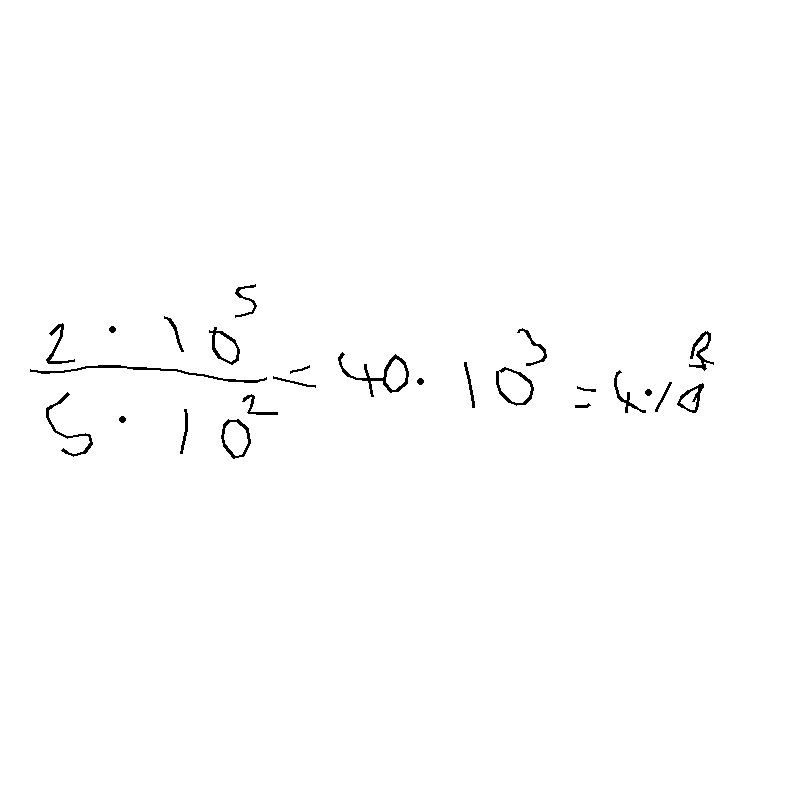 2 · 10^5 / 5 · 10^2 = 40 · 10^3 = 4 · 10